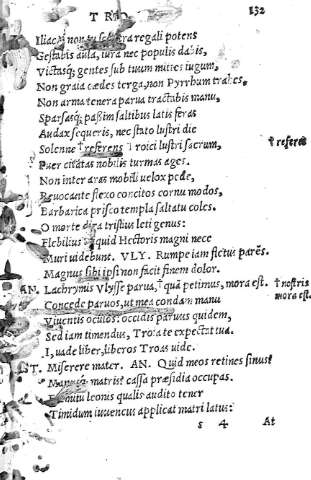 TRO. 132
Iliaca non tu sceptra regali potens
Gestabis aula, iura nec populis dabis,
Victasq; gentes sub tuum mittes iugum,
Non graia cædes terga, non Pyrrhum trahes,
Non arma tenera parua tractabis manu,
Sparsasq; paßim saltibus latis feras
Audax sequeris, nec stato lustri die
Solenne †referens Troici lustri sacrum, † referes
Puer citatas nobilis turmas ages.
Non inter aras mobili uelox pede,
Reuocante flexo concitos cornu modos,
Barbarica prisco templa saltatu coles.
O morte dira tristius leti genus:
Flebilius quid Hectoris magni nece
Muri uidebunt. VLY. Rumpe iam fletus parēs.
Magnus sibi ipsi non facit finem dolor.
AN. Lachrymis Vlysse parua, †quā petimus, mora est. † nostris
Concede paruos, ut mea condam manu mora est.
Viuentis oculos: occidis paruus quidem,
Sed iam timendus, Troia te expectat tua.
I, uade liber, liberos Troas uide.
ST. Miserere mater. AN. Quid meos retines sinus?
Manusq; matris? cassa præsidia occupas.
Fremitu leonis qualis audito tener
Timidum iuuencus applicat matri latus:
s 4 At